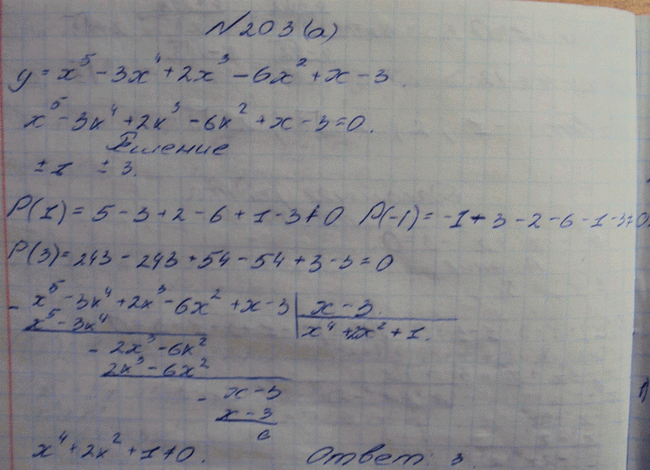 N203(а)
y = x⁵ - 3x⁴ + 2x³ - 6x² + x - 3.
x⁵ - 3x⁴ + 2x³ - 6x² + x - 3 = 0.
Решение
± 1 ± 3.
P(1) = 5 - 3 + 2 - 6 + 1 - 3 ≠ 0 P(-1) = -1 + 3 - 2 - 6 - 1 - 3 ≠ 0.
P(3) = 243 - 243 + 54 - 54 + 3 - 3 = 0
- x⁵ - 3x⁴ + 2x³ - 6x² + x - 3 | x - 3
x⁵ - 3x⁴ | x⁴ + 2x² + 1.
- 2x³ - 6x²
2x³ - 6x²
- x - 3
x - 3
0
x⁴ + 2x² + 1 ≠ 0. Ответ: 3.